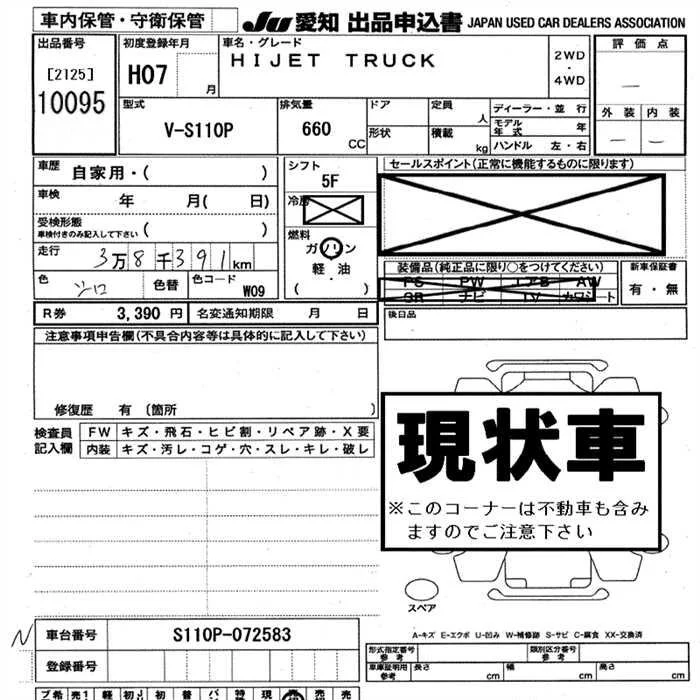 車内保管・守衛保管
JU 愛知 出品申込書 JAPAN USED CAR DEALERS ASSOCIATION
出品番号
[2125]
10095
初度登録年月
H07 月
車名・グレード
HIJET TRUCK
2WD
・
4WD
評価点
—
外装 内装
— —
型式
V-S110P
排気量
660 CC
ドア
形状
定員 人
積載 kg
ディーラー・並行
モデル年式 年
ハンドル 左・右
車歴 自家用・( )
車検 年 月( 日)
受検形態
車検付きのみ記入して下さい ( )
走行 3万8千391km
色 シロ 色替 色コード W09
シフト
5F
冷房
燃料
ガソリン
軽・油
( )
セールスポイント(正常に機能するものに限ります)
装備品(純正品に限り○をつけてください)
PS PW エアB AW
SR ナビ TV カワシート
新車保証書
有・無
R券 3,390円 名変通知期限 月 日
後日品
注意事項申告欄(不具合内容等は具体的に記入して下さい)
修復歴 有 〔箇所 〕
検査員
記入欄
FW キズ・飛石・ヒビ割・リペア跡・X要
内装 キズ・汚レ・コゲ・穴・スレ・キレ・破レ
現状車
※このコーナーは不動車も含み
ますのでご注意下さい
スペア
A-キズ E-エクボ U-凹み W-補修跡 S-サビ C-腐食 XX-交換済
N 車台番号 S110P-072583
登録番号
形式指定番号
参考
類別区分番号
参考
車庫証明用
参考
長さ cm 幅 cm 高さ cm